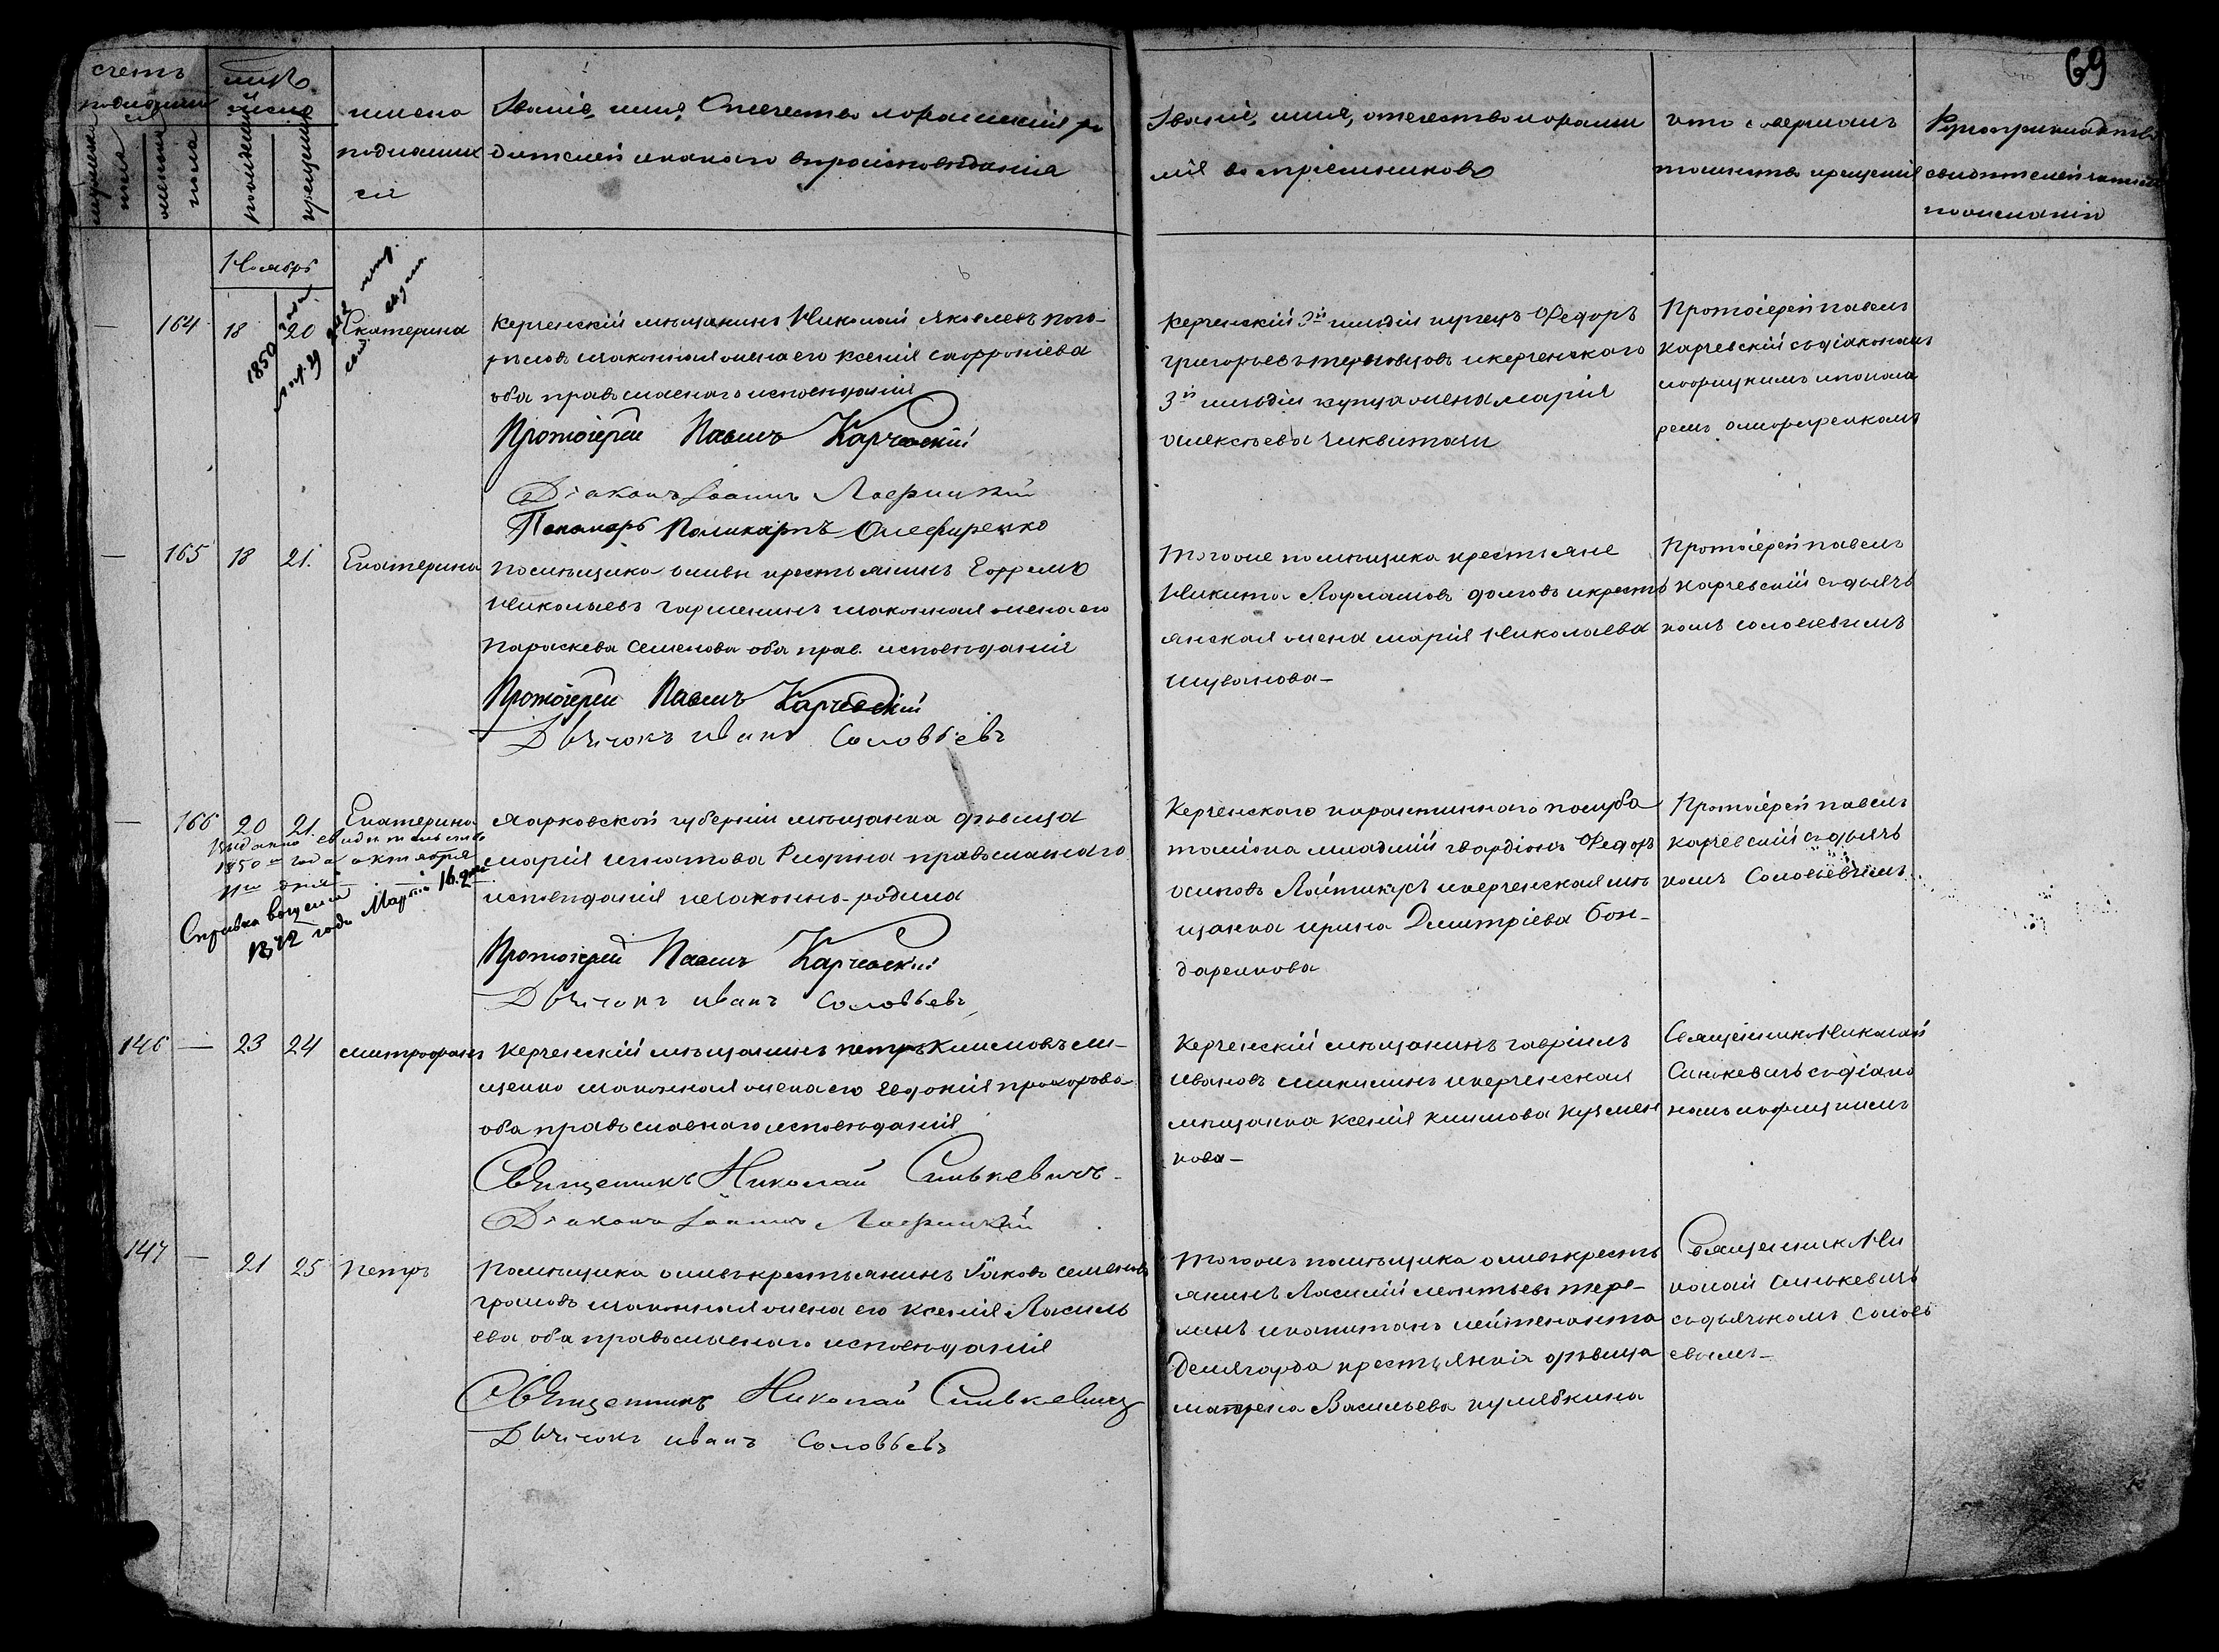 69
счетъ
родившихся
мужеска пола
женска пола
мѣсяцъ и число
рожденія
крещенія
имена
родившихся
Званіе, имя, Отечество и фамилія ро
дителей и какого вѣроисповѣданія
Званіе, имя, отечество и фами
лія воспріемниковъ
кто совершалъ
таинство крещенія
Рукоприкладство
свидетелей записи
по желанію
Ноябрь
— 164 18 20 Екатерина
1850 года
выдана
Керченскій мѣщанинъ Николай Яковлевъ Пого-
рѣловъ и законная жена его Ксенія Софроніева
оба православнаго исповѣданія
Протоіерей Павелъ Карчевскій
Діаконъ Іоаннъ Лоериикій
Пономарь Поликарпъ Олефиренко
Керченскій 3й гильдіи купецъ Федоръ
Григорьевъ Терновцовъ и керченскаго
3й гильдіи купца жена Марія
Алексѣева Чиквитаги
Протоіерей Павелъ
Карчевскій съ діакономъ
и понома
ремъ Олефиренкомъ
— 165 18 21. Екатерина
Помѣщика Оливы крестьянинъ Ефремъ
Николаевъ Гарменинъ и законная жена его
Параскева Семенова оба прав. исповѣданія
Протоіерей Павелъ Карчевскій
Дьячокъ Иванъ Соловьевъ
Тогоже помѣщика крестьяне
Никита Долговъ и кресть
янская жена Марія Николаева
Шувалова —
Протоіерей Павелъ
Карчевскій съ дьяч
комъ Соловьевымъ
— 166 20 21. Екатерина
Выданно свидетельство
1850го года октября
11го дня
Справка воцении
1872 года Марта 16. дня
Харковской губерніи мѣщанка дѣвица
Марія Игнатова Редина православнаго
исповѣданія незаконно-родила
Протоіерей Павелъ Карчевскій
Дьячокъ Иванъ Соловьевъ
Керченскаго карантиннаго полуба
таліона младшій гвардіонъ Федоръ
Осиповъ Лайтикусъ и керченская мѣ
щанка Ирина Дмитріева Бон-
даренкова
Протоіерей Павелъ
Карчевскій съ дьяч
комъ Соловьевымъ
146 — 23 24 Митрофанъ
Керченскій мѣщанинъ Петръ Климовъ Ли-
щенко и законная жена его Евдокія Прохорова
оба православнаго исповѣданія
Священникъ Николай Синькевичъ
Діаконъ Іоаннъ Лоериикій
Керченскій мѣщанинъ Гавріилъ
Ивановъ Микилинъ и керченская
мѣщанка Ксенія Климова Кузмен
кова —
Священникъ Николай
Синькевичъ съ діако
номъ
147 — 21 25 Петръ
Помѣщика Оливъ крестьянинъ Іаковъ Семеновъ
Громовъ и законная жена его Ксенія Василь
ева оба православнаго исповѣданія
Священникъ Николай Синькевичъ
Дьячокъ Иванъ Соловьевъ
Тогожъ помѣщика Оливъ кресть
янинъ Василій Леонтьевъ Тере-
линъ и капитанъ лейтенанта
Делягарда крестьянка дѣвица
Матрена Васильева Кулябкина
Священникъ Ни
колай Синькевичъ
съ дьячкомъ Соловь
евымъ —